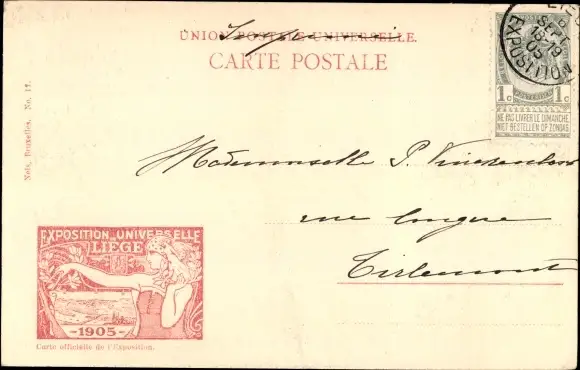 UNION POSTALE UNIVERSELLE.
CARTE POSTALE
LIEGE
SEPT
18-19
05
EXPOSITION
1c 1c
NE PAS LIVRER LE DIMANCHE
NIET BESTELLEN OP ZONDAG
Nels, Bruxelles, No. 17.
Mademoiselle P.
rue longue
Tirlemont
EXPOSITION UNIVERSELLE
LIEGE
-1905-
Carte officielle de l'Exposition.